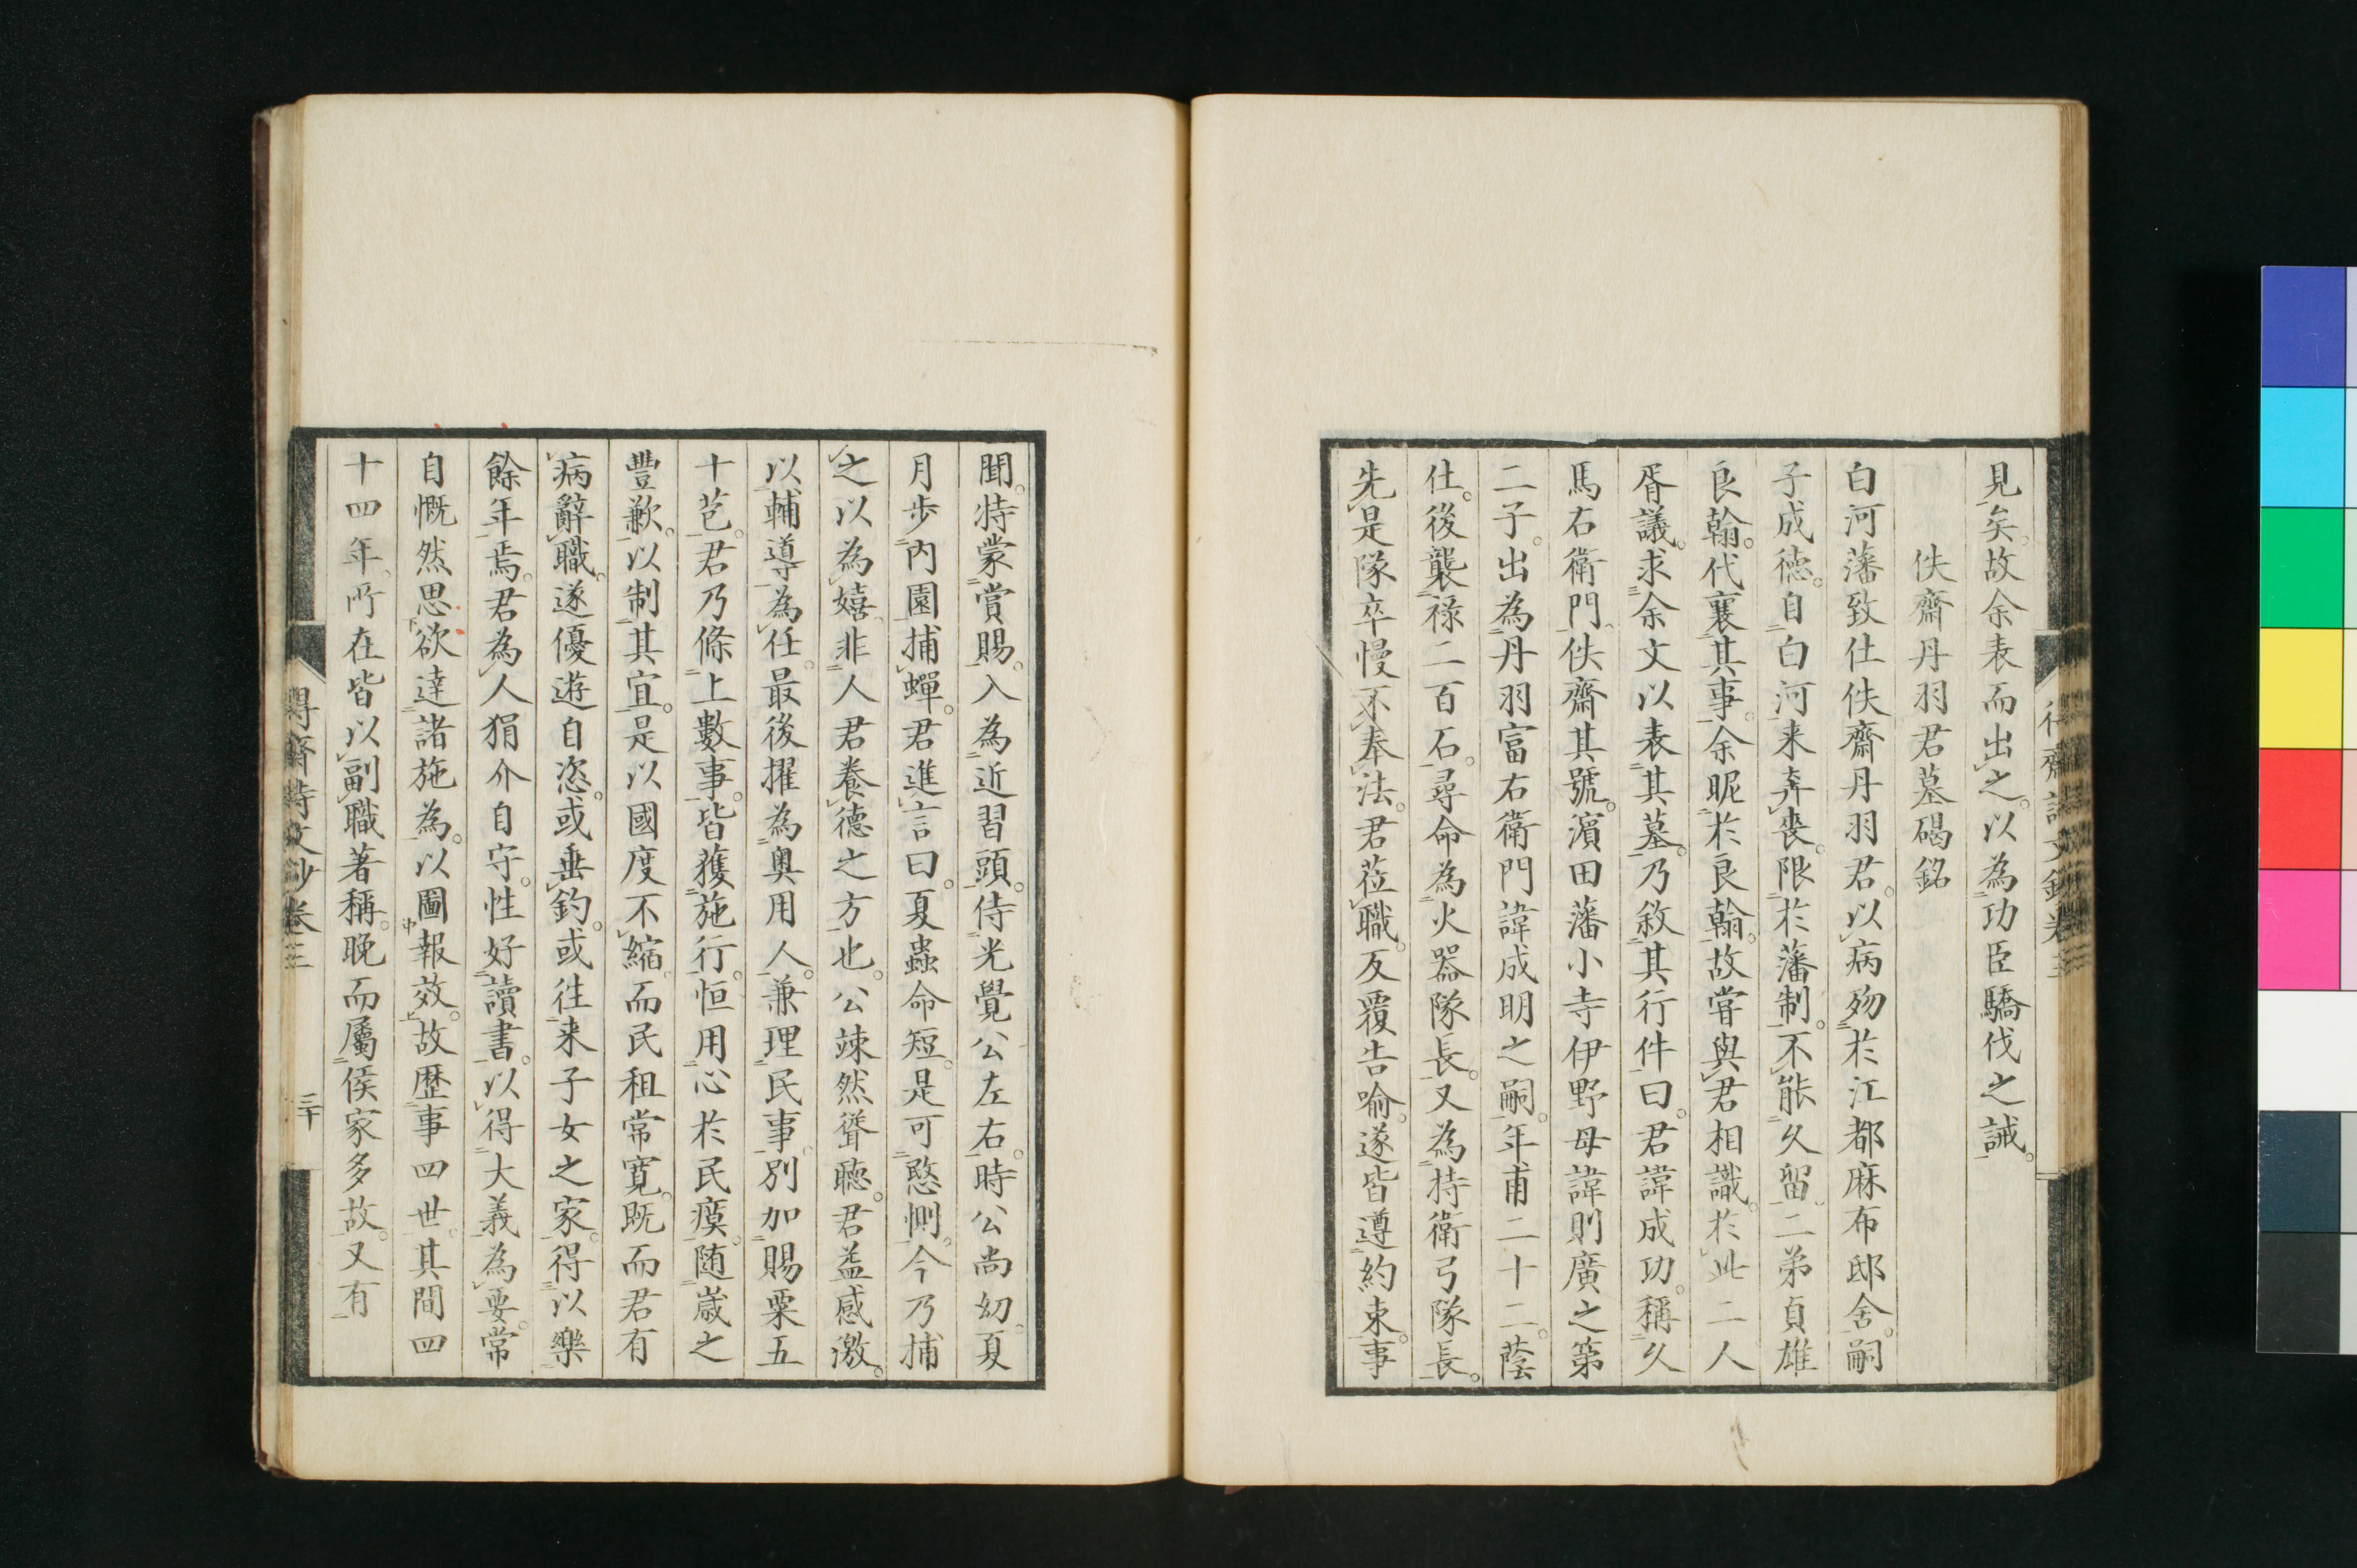 見矣。故余表而出之。以為功臣驕伐之誡。
佚齋丹羽君墓碣銘
白河藩致仕佚齋丹羽君。以病歿於江都麻布邸舍。嗣
子成德。自白河来奔喪。限於藩制。不能久留。二弟貞雄
良翰。代襄其事。余昵於良翰。故嘗與君相識。於此二人
胥議。求余文以表其墓。乃敘其行件曰。君諱成功。稱久
馬右衛門。佚齋其號。濵田藩小寺伊野母諱則廣之第
二子。出為丹羽富右衛門諱成明之嗣。年甫二十二。蔭
仕。後襲祿二百石。尋命為火器隊長。又為持衛弓隊長。
先是隊卒慢不奉法。君莅職。反覆告喻。遂皆遵約束。事
聞。特蒙賞賜。入為近習頭。侍光覺公左右。時公尚幼。夏
月步內園捕蟬。君進言曰。夏蟲命短。是可愍惻。今乃捕
之以為嬉。非人君養德之方也。公竦然聳聽。君益感激。
以輔導為任。最後擢為奥用人。兼理民事。別加賜粟五
十苞。君乃條上數事。皆獲施行。恒用心於民瘼。随歳之
豐歉。以制其宜。是以國度不縮。而民租常寛。既而君有
病辭職。遂優遊自恣。或垂釣。或往来子女之家。得以樂
餘年焉。君為人狷介自守。性好讀書。以得大義為要。常
自慨然思欲達諸施為。以圖報效。故歴事四世。其間四
十四年。所在皆以副職著稱。晩而屬侯家多故。又有
得齋詩文鈔卷三
三十